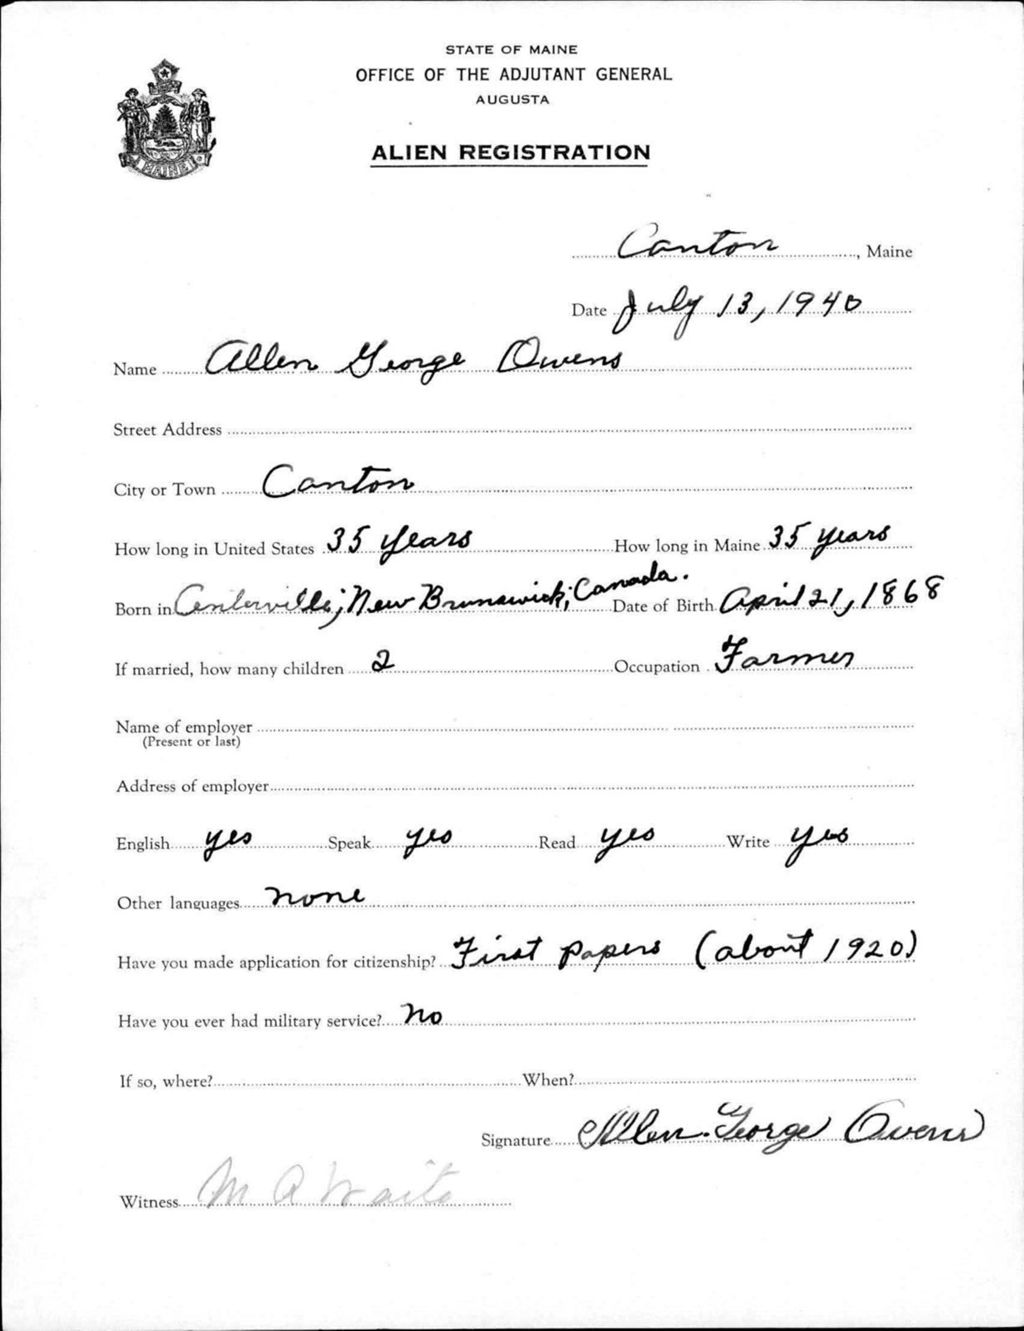 STATE OF MAINE
OFFICE OF THE ADJUTANT GENERAL
AUGUSTA
ALIEN REGISTRATION
MAINE
Canton, Maine
Date July 13, 1940
Name Allen George Owens
Street Address
City or Town Canton
How long in United States 35 years How long in Maine 35 years
Born in Centerville, New Brunswick, Canada. Date of Birth April 21, 1868
If married, how many children 2 Occupation Farmer
Name of employer
(Present or last)
Address of employer
English yes Speak yes Read yes Write yes
Other languages none
Have you made application for citizenship? First papers (about 1920)
Have you ever had military service? no
If so, where? When?
Signature Allen George Owens
Witness M A Waite